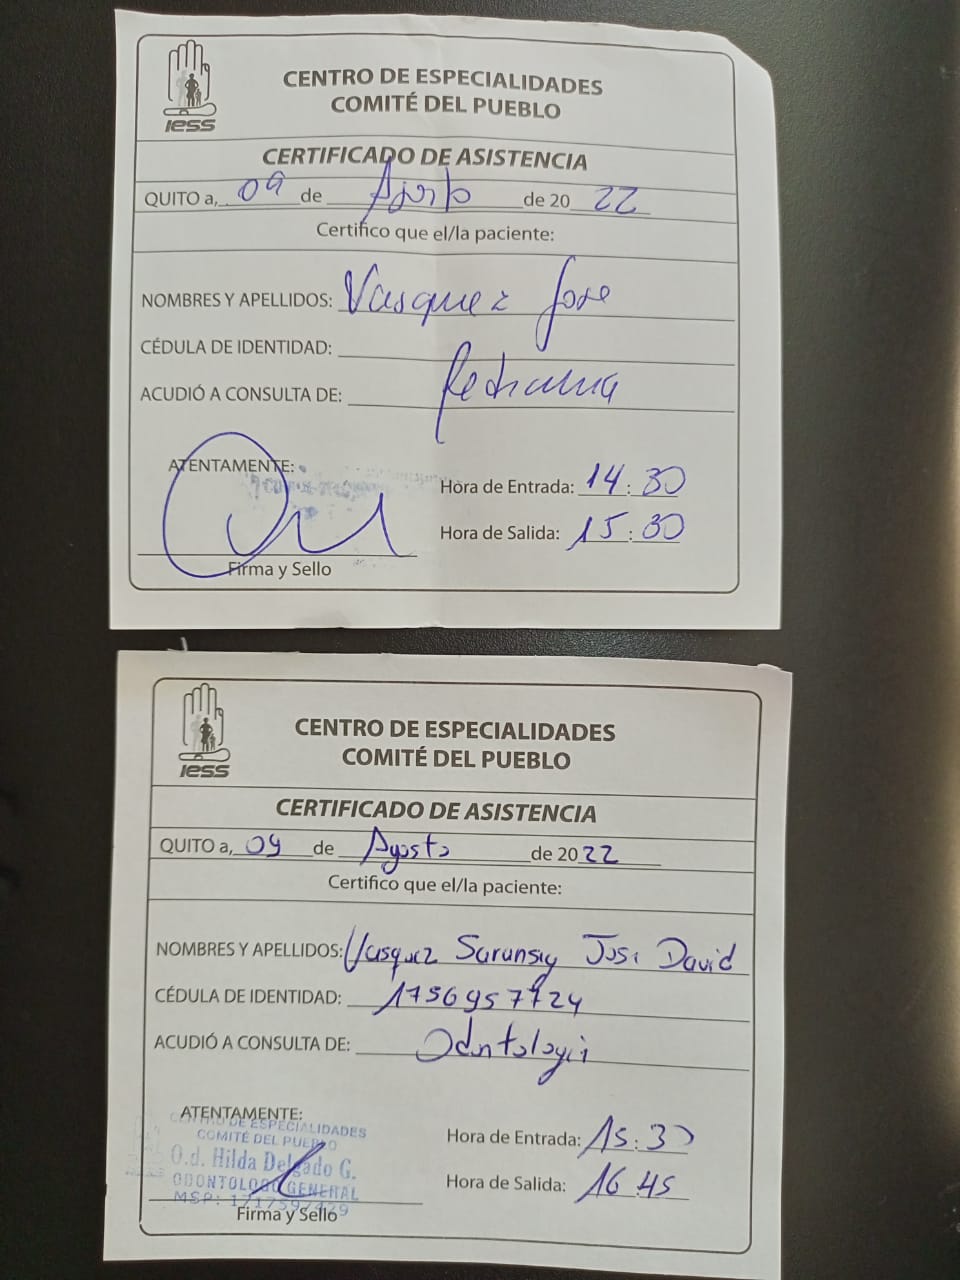 IESS
CENTRO DE ESPECIALIDADES
COMITÉ DEL PUEBLO
CERTIFICADO DE ASISTENCIA
QUITO a, 09 de Agosto de 2022
Certifico que el/la paciente:
NOMBRES Y APELLIDOS: Vasquez Jose
CÉDULA DE IDENTIDAD:
ACUDIÓ A CONSULTA DE: Pediatria
ATENTAMENTE:
Hora de Entrada: 14:30
Hora de Salida: 15:30
Firma y Sello
IESS
CENTRO DE ESPECIALIDADES
COMITÉ DEL PUEBLO
CERTIFICADO DE ASISTENCIA
QUITO a, 09 de Agosto de 2022
Certifico que el/la paciente:
NOMBRES Y APELLIDOS: Vasquez José David
CÉDULA DE IDENTIDAD:
ACUDIÓ A CONSULTA DE: Odontologia
ATENTAMENTE:
CENTRO DE ESPECIALIDADES
COMITÉ DEL PUEBLO
O.d. Hilda Delgado G.
ODONTOLOGO GENERAL
MSP:
Hora de Entrada: 15:30
Hora de Salida: 16:45
Firma y Sello